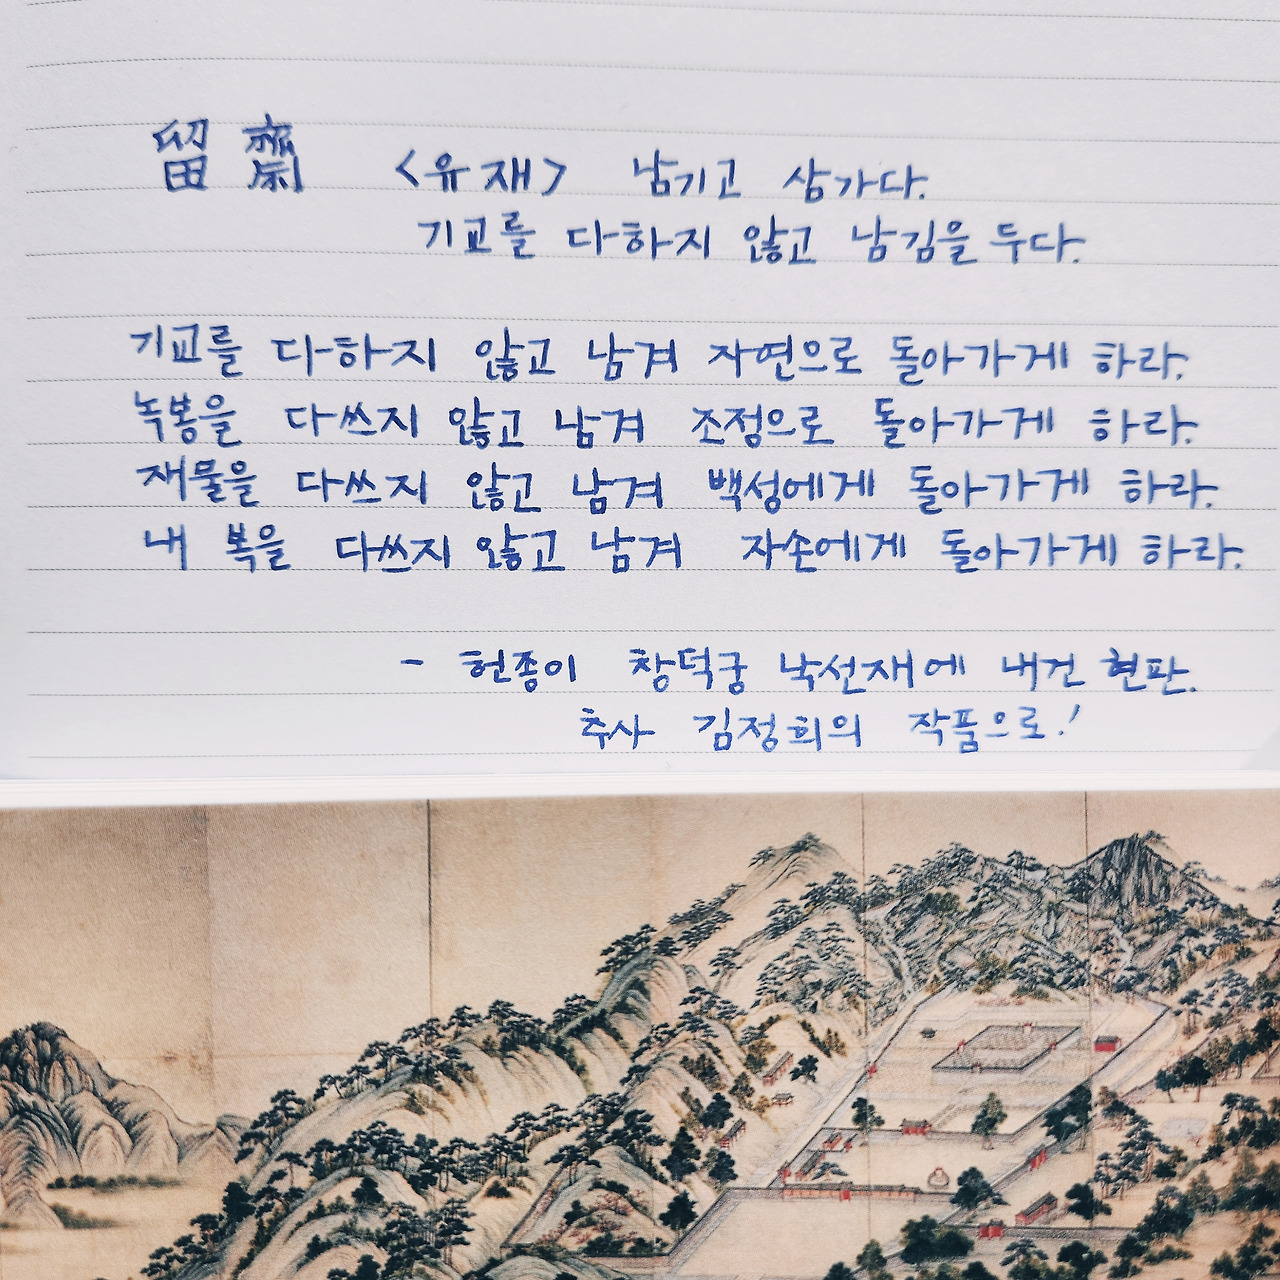 留齋 <유재> 남기고 삼가다.
기교를 다하지 않고 남김을 두다.
기교를 다하지 않고 남겨 자연으로 돌아가게 하라.
녹봉을 다쓰지 않고 남겨 조정으로 돌아가게 하라.
재물을 다쓰지 않고 남겨 백성에게 돌아가게 하라.
내 복을 다쓰지 않고 남겨 자손에게 돌아가게 하라.
- 헌종이 창덕궁 낙선재에 내건 현판.
추사 김정희의 작품으로!